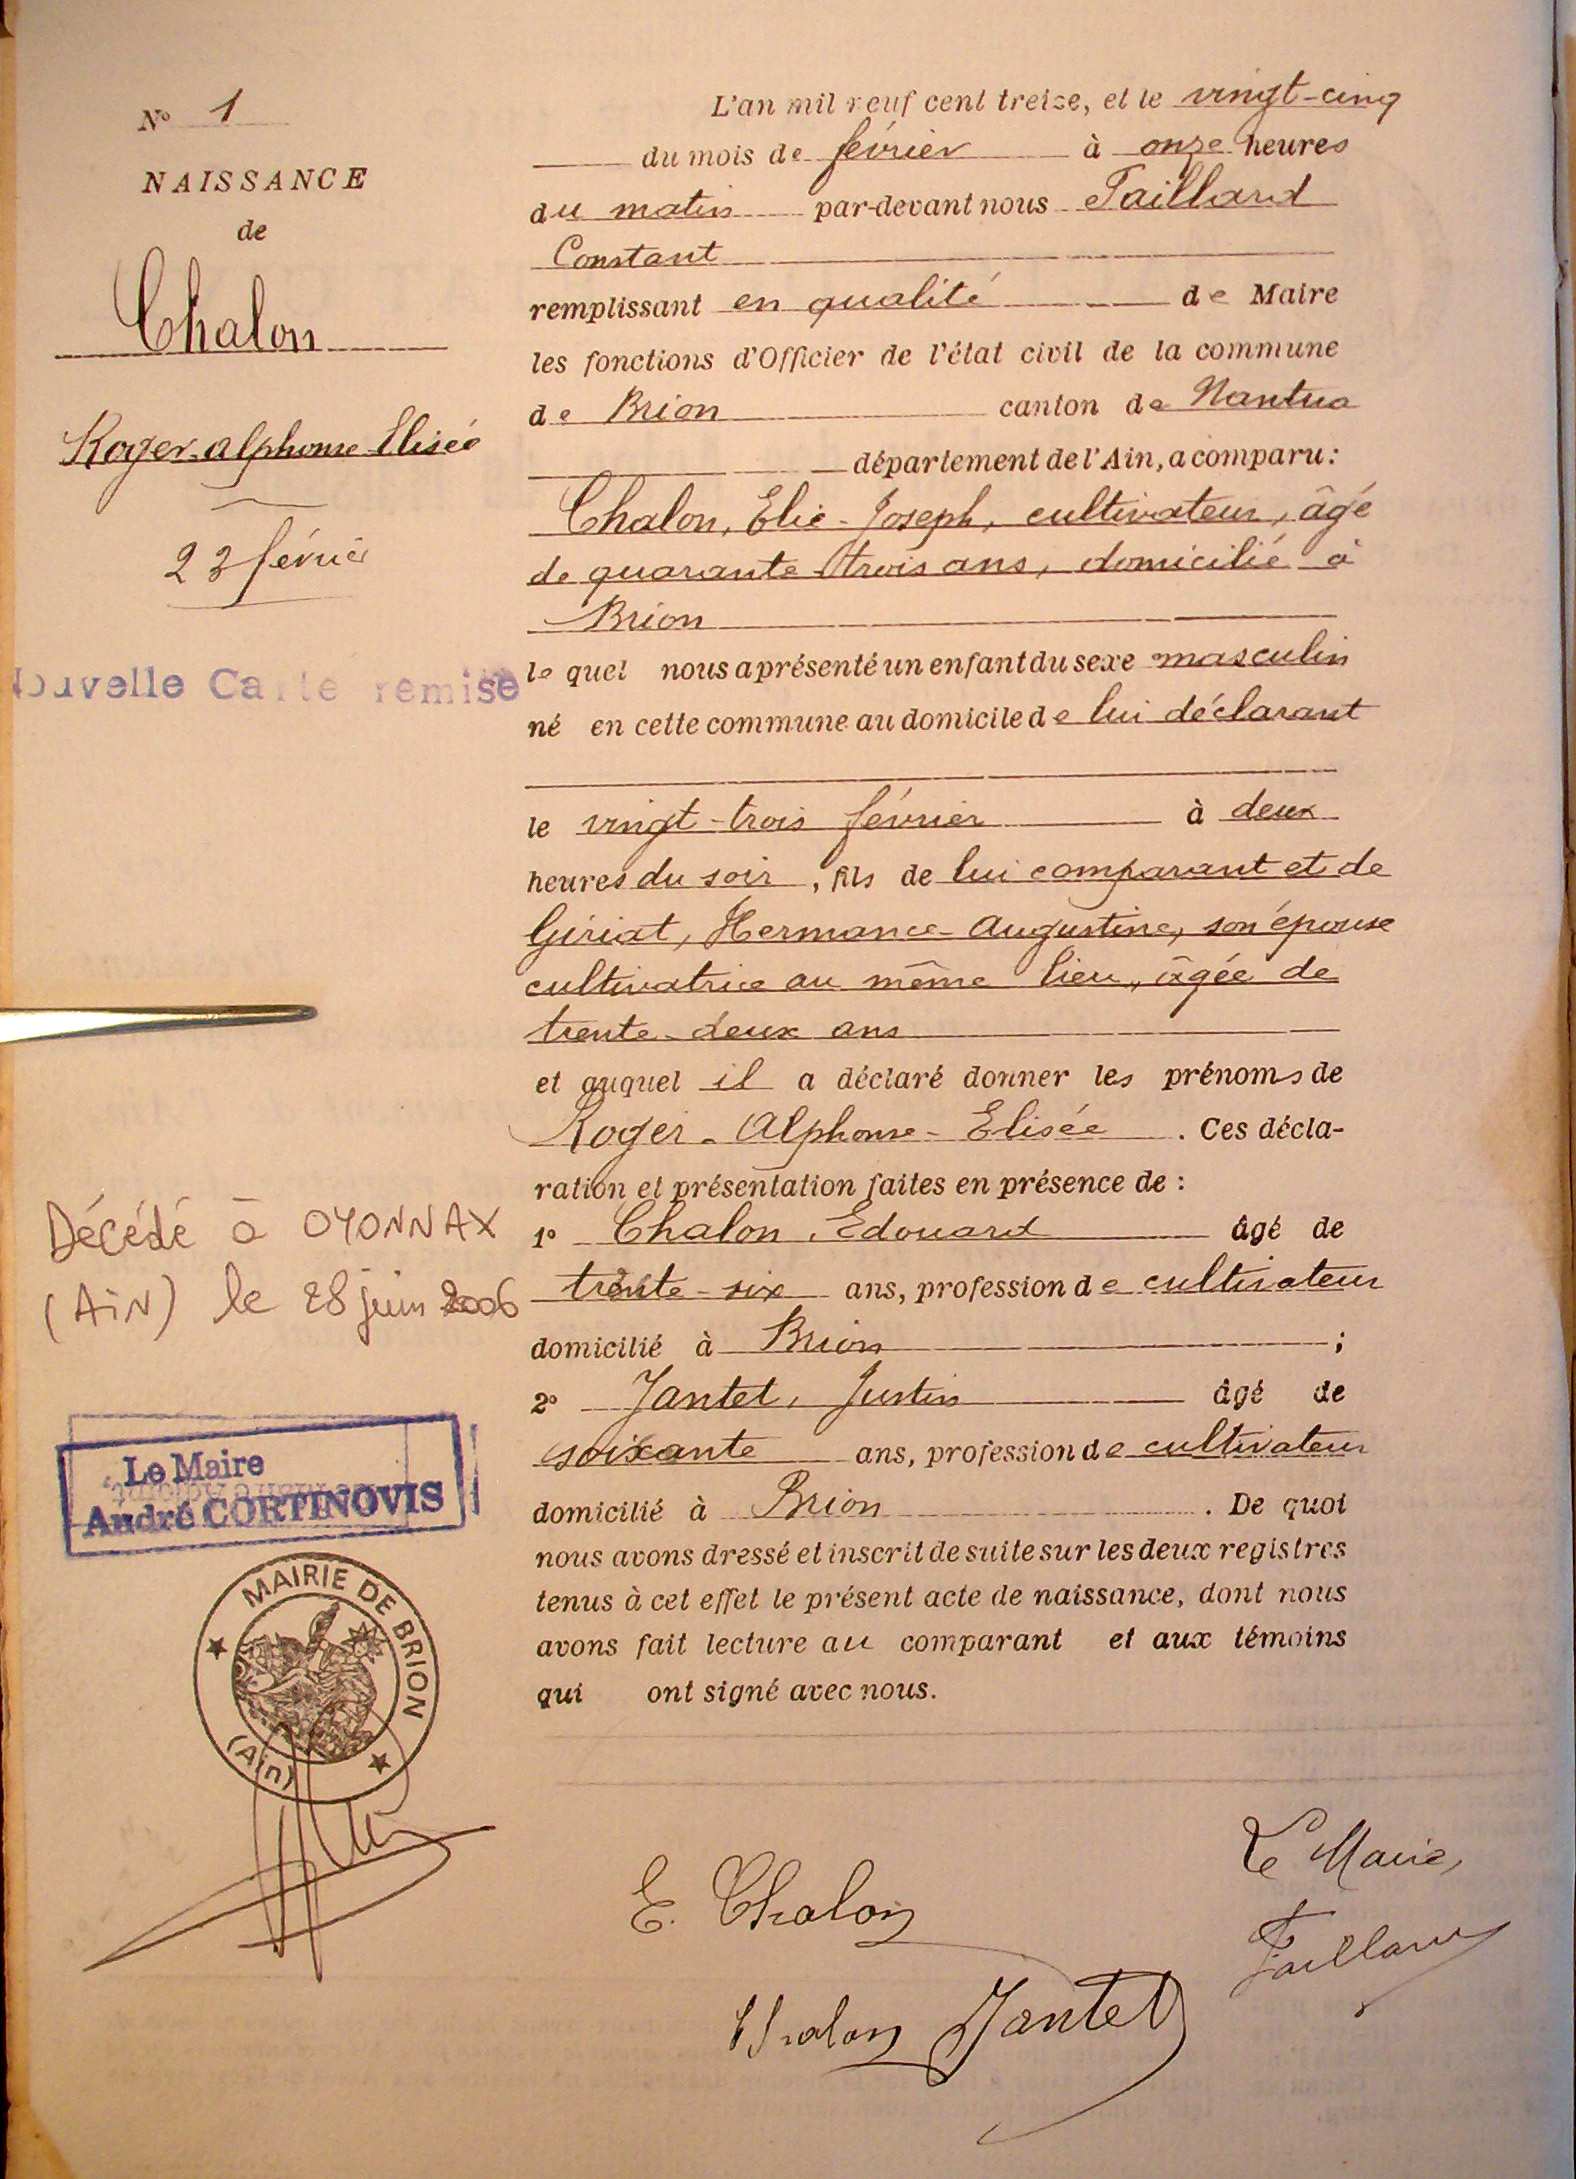 N° 1
NAISSANCE
de
Chalon
Roger-alphonse Elisée
23 février
Nouvelle Carte remise
Décédé à OYONNAX
(AiN) le 28 juin 2006
Le Maire
André CORTINOVIS
MAIRIE DE BRION
(Ain)
L'an mil neuf cent treize, et le vingt-cinq
du mois de février à onze heures
du matin par-devant nous Taillard
Constant
remplissant en qualité de Maire
les fonctions d'Officier de l'état civil de la commune
de Brion canton de Nantua
département de l'Ain, a comparu :
Chalon, Elie-Joseph, cultivateur, âgé
de quarante trois ans, domicilié à
Brion
lequel nous a présenté un enfant du sexe masculin
né en cette commune au domicile de lui déclarant
le vingt-trois février à deux
heures du soir, fils de lui comparant et de
Gériat, Hermance-Augustine, son épouse
cultivatrice au même lieu, âgée de
trente-deux ans
et auquel il a déclaré donner les prénoms de
Roger-Alphonse-Elisée. Ces décla-
ration et présentation faites en présence de :
1° Chalon, Edouard âgé de
trente-six ans, profession de cultivateur
domicilié à Brion ;
2° Jantet, Justin âgé de
soixante ans, profession de cultivateur
domicilié à Brion. De quoi
nous avons dressé et inscrit de suite sur les deux registres
tenus à cet effet le présent acte de naissance, dont nous
avons fait lecture au comparant et aux témoins
qui ont signé avec nous.
Le Maire,
E. Chalon
Taillard
Chalon Jantet